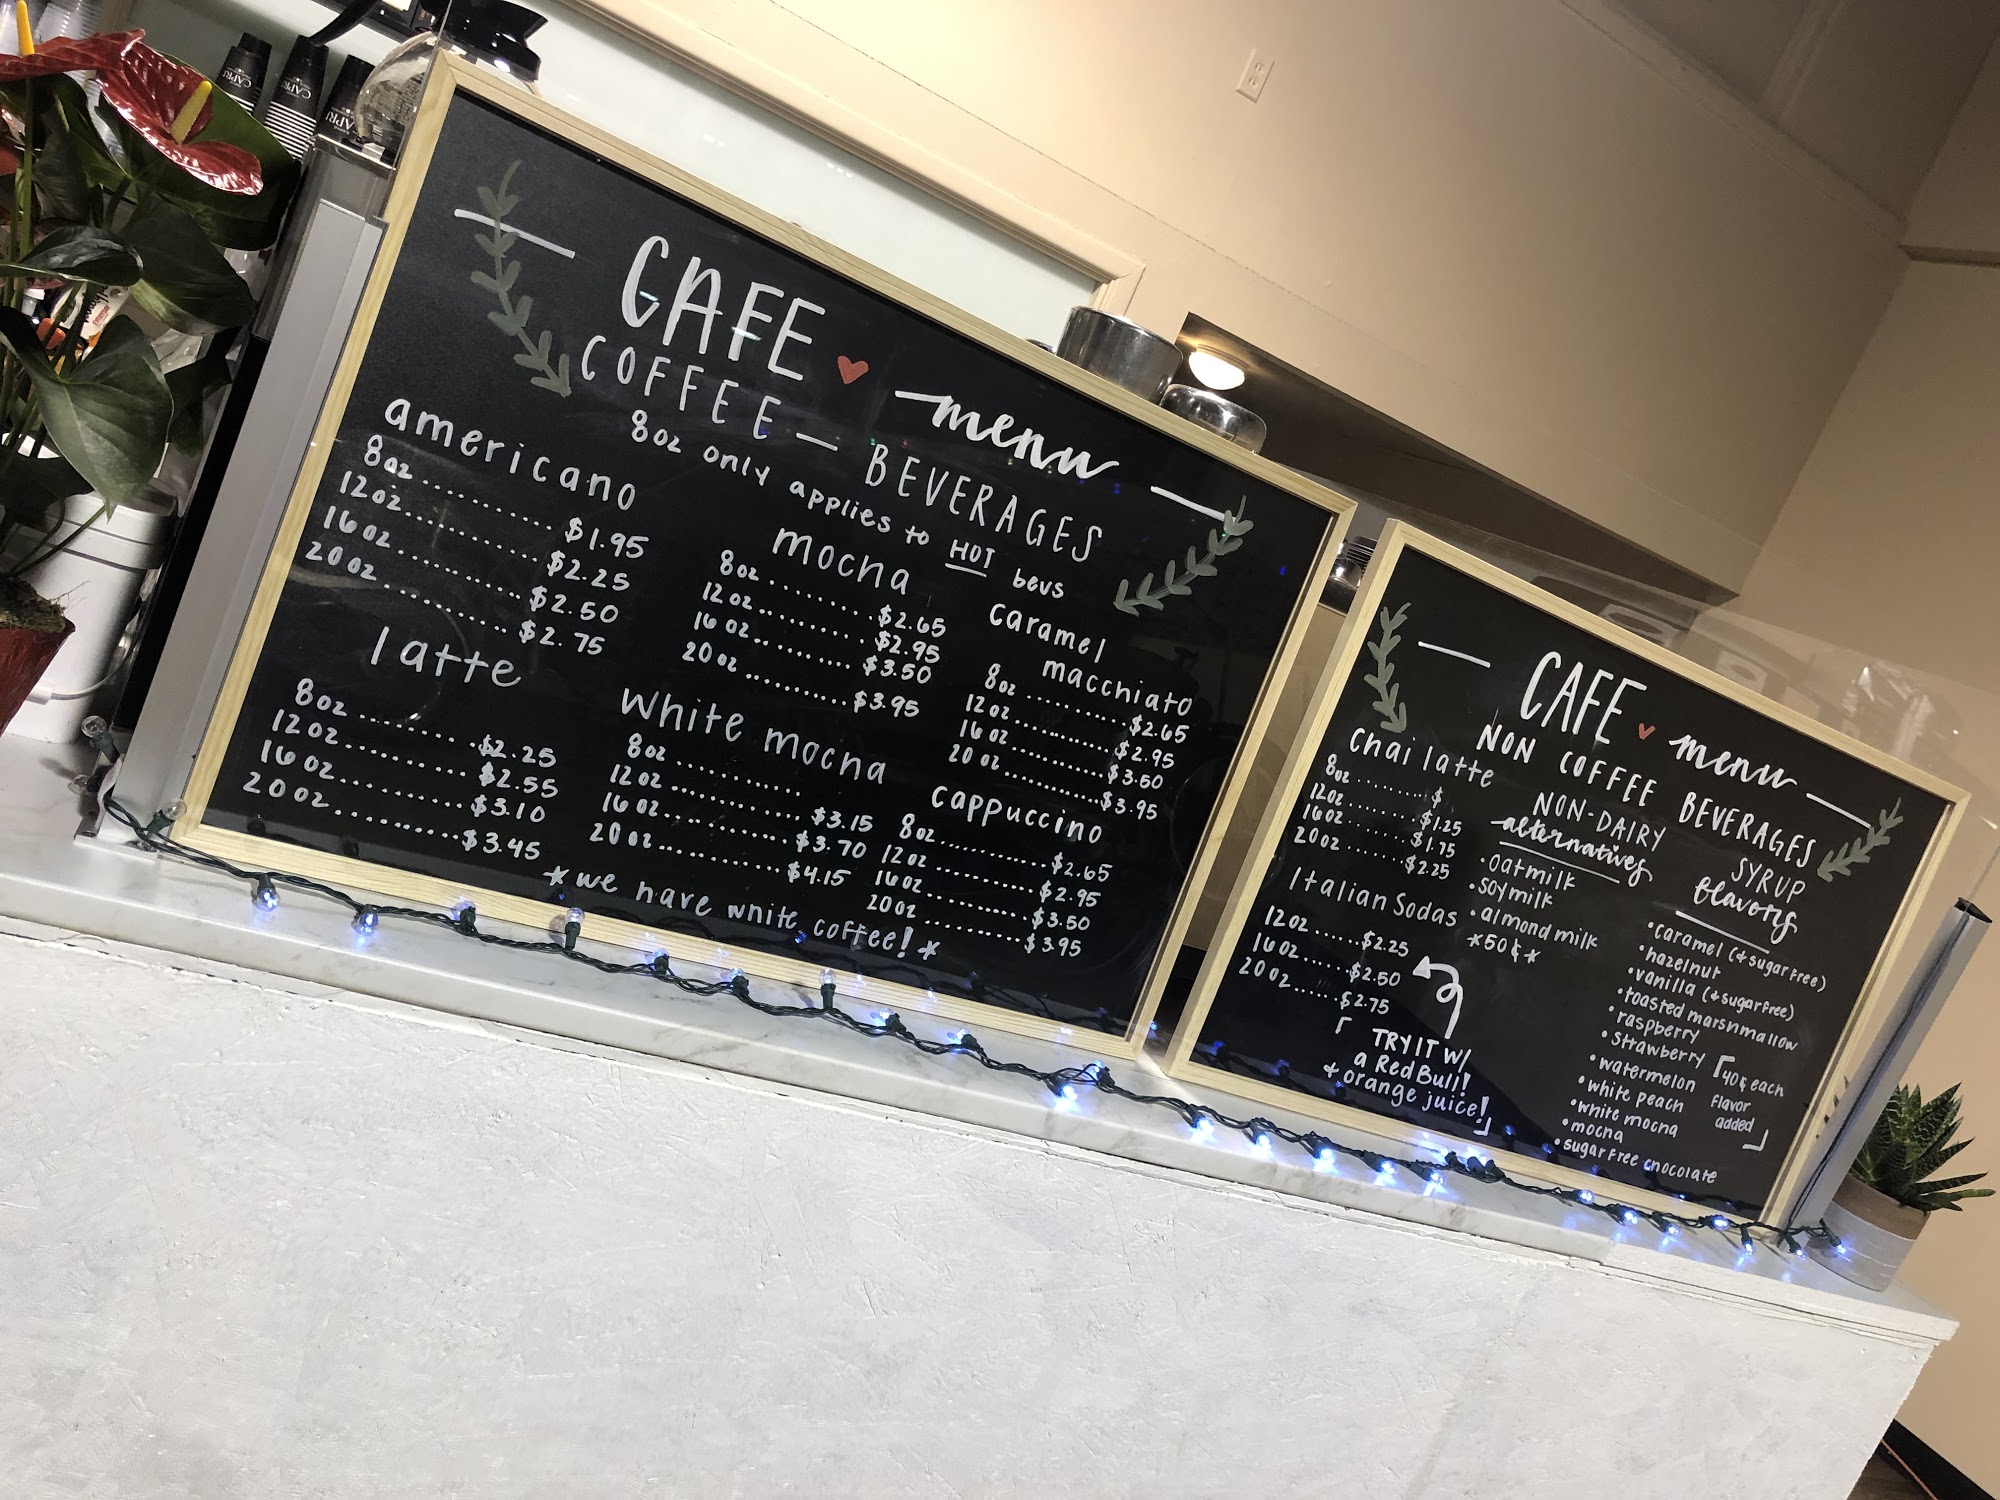 CAPRI
CAPRI
CAPRI
CAFE menu
COFFEE — BEVERAGES
8oz only applies to HOT bevs
americano
8oz.............$1.95
12oz.............$2.25
16oz.............$2.50
20oz.............$2.75
latte
8oz.............$2.25
12oz.............$2.55
16oz.............$3.10
20oz.............$3.45
mocha
8oz.............$2.65
12oz.............$2.95
16oz.............$3.50
20oz.............$3.95
white mocha
8oz.............
12oz.............$3.15
16oz.............$3.70
20oz.............$4.15
caramel
macchiato
8oz.............$2.65
12oz.............$2.95
16oz.............$3.50
20oz.............$3.95
cappuccino
8oz.............$2.65
12oz.............$2.95
16oz.............$3.50
20oz.............$3.95
*we have white coffee!*
CAFE menu
NON COFFEE BEVERAGES
chai latte
8oz.........$
12oz.........$1.25
16oz.........$1.75
20oz.........$2.25
Italian Sodas
12oz......$2.25
16oz......$2.50
20oz......$2.75
「TRY IT w/
a RedBull!
+ orange juice!」
NON-DAIRY
alternatives
•oatmilk
•soymilk
•almond milk
*50¢*
SYRUP
flavors
•caramel (+sugar free)
•hazelnut
•vanilla (+sugarfree)
•toasted marshmallow
•raspberry
•strawberry
•watermelon
•white peach
•white mocha
•mocha
•sugar free chocolate
「40¢ each
flavor
added」